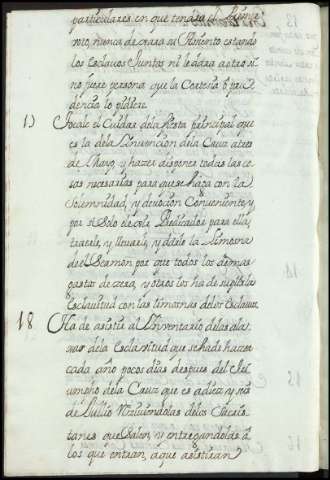 particulares en que tendra el
nunca dejara su Asiento estando
los Esclavos Juntos ni le dara a otro si
no fuere persona que la Cortesia o pru
dencia lo pidiere.
Tocale el Cuidar de la fiesta principal que
es la de la Invencion de la Cruz a tres
de Mayo, y hazer disponer todas las co
sas necesarias para que se haga con la
Solemnidad, y devocion Conveniente, y
por si Solo el Predicador para ella,
traerle, y llevarle, y darle la limosna
del Sermon por que todos los demas
gastos de cera, y otros los ha de suplir la
Esclavitud con las limosnas de los Esclavos
18 Ha de asistir al Inventario de las ala
de la Esclavitud que se ha de hazer
cada año pocos dias despues del
de la Cruz que es a diez y seis
de Jullio de los
tanes que Salen, y entregandolas a
los que entran, a que asistiran